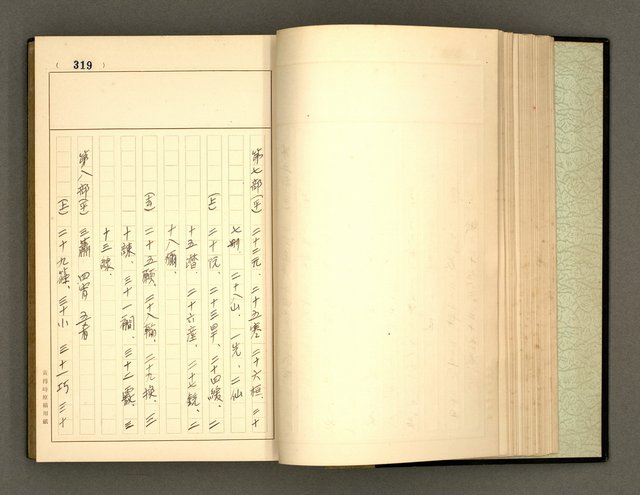 ( 319 )
第七部(平) 二十二元、二十五寒 二十六桓、二十
七刪、二十八山、一先、二仙
(上) 二十阮、二十三旱、二十四緩、二
十五潸、二十六產、二十七銑、二
十八獮、
(去) 二十五願、二十八翰、二十九換、三
十諫、三十一襇、三十二霰、三
十三線、
第八部(平) 三蕭 四宵 五肴
(上) 二十九篠、三十小 三十一巧 三十
黃得時原稿用紙